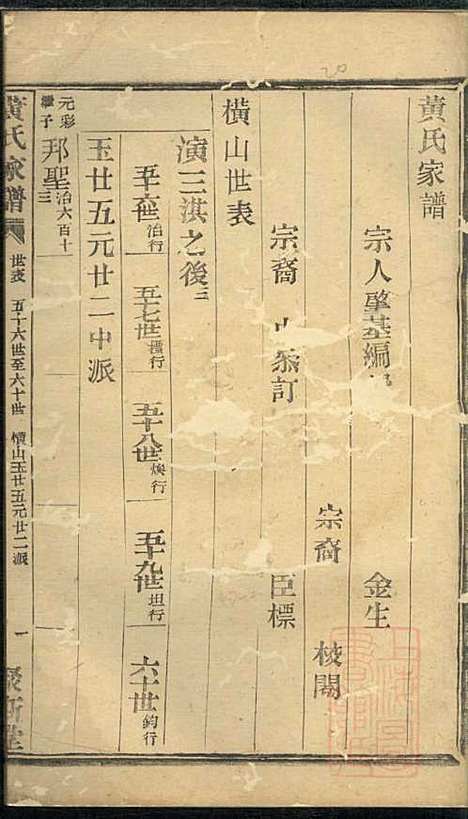 黃氏家譜
宗人肇基編
金生
宗裔
校閱
宗裔
叅訂
臣標
橫山世表
演三淇之後三
五十六世治行
五十七世標行
五十八世煥行
五十九世坦行
六十世鈞行
玉廿五元廿二中派
元彩
繼子
邦聖治六百十三
黃氏家譜
世表
五十六世至六十世
橫山玉廿五元廿二派
一
20